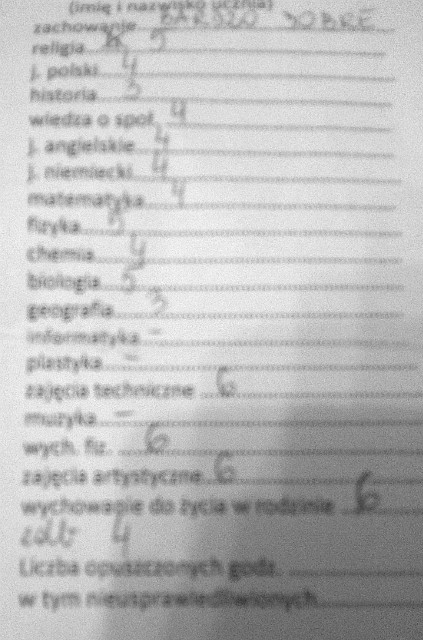 (imię i nazwisko ucznia)
zachowanie BARSZO DOBRE
religia 5
j. polski 4
historia 3
wiedza o społ. 4
j. angielskie 4
j. niemiecki 4
matematyka 4
fizyka 5
chemia 4
biologia 5
geografia 3
informatyka –
plastyka –
zajęcia techniczne 6
muzyka –
wych. fiz. 6
zajęcia artystyczne 6
wychowanie do życia w rodzinie 6
4
Liczba opuszczonych godz.
w tym nieusprawiedliwionych